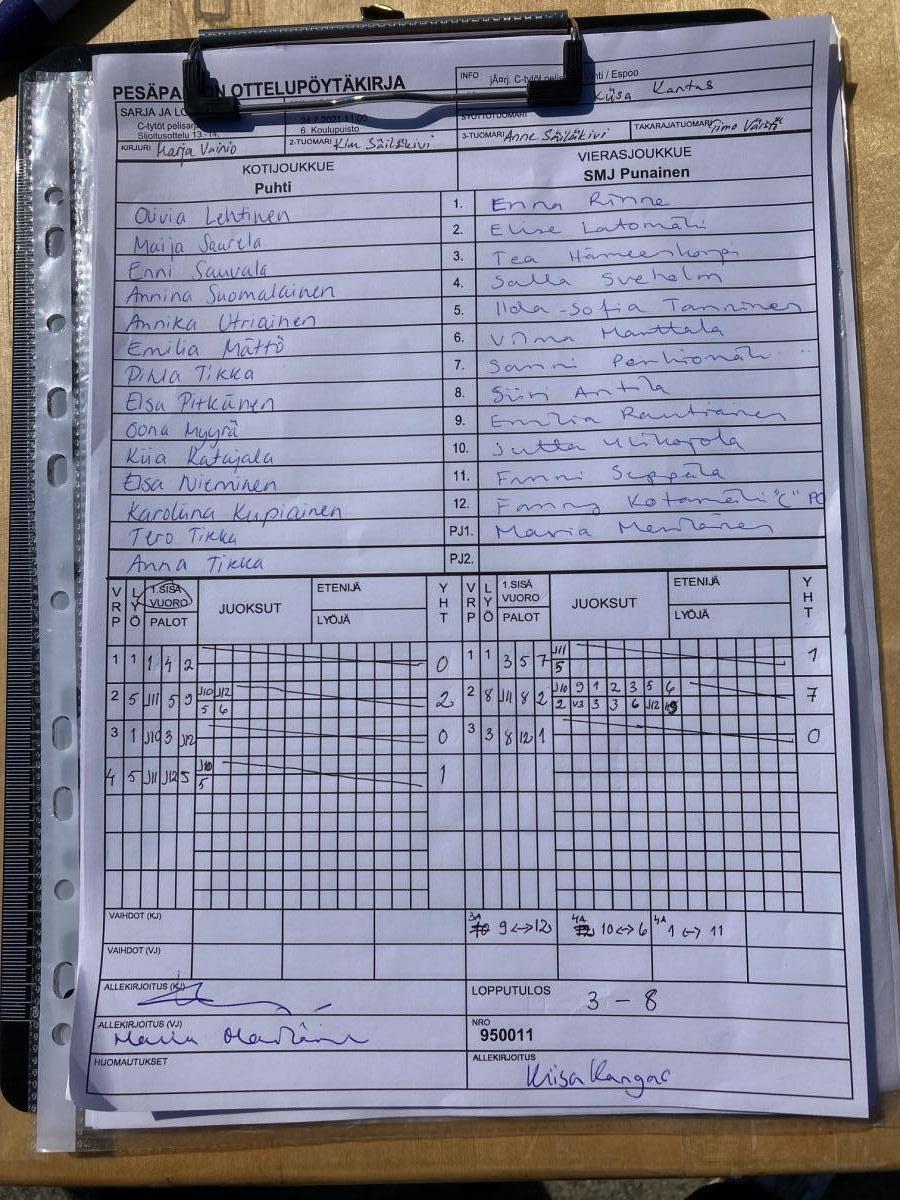 PESÄPA ON OTTELUPÖYTÄKIRJA
INFO jÃ¤rj. C-tytöt pelis Vihti / Espoo
Kiisa
SARJA JA LO 24.7.2021 11:00 SYÖTTÖTUOMARI
C-tytöt pelisarj 6. Koulupuisto
Sijoitusottelu 13.-14.
KIRJURI Marja Vainio 2-TUOMARI Kim Säiläkivi 3-TUOMARI Anne Säiläkivi TAKARAJATUOMARI Timo
KOTIJOUKKUE VIERASJOUKKUE
Puhti SMJ Punainen
Olivia Lehtinen 1. Enna Rinne
Maija Saarela 2. Elise Latomäki
Enni Sauvala 3. Tea Hämeenkorpi
Annina Suomalainen 4. Salla Sveholm
Annika Utriainen 5. Ilda-Sofia Tanninen
Emilia Mättö 6. Vilma Manttala
Pihla Tikka 7. Sanni Penkiomäki
Elsa Pitkänen 8. Siiri Antila
Oona Myyrä 9. Emilia Rautiainen
Kiia Katajala 10. Jutta Ylikojola
Elsa Nieminen 11. Fanni Seppälä
Karoliina Kupiainen 12. Fanny Kotamäki "C" PC
Tero Tikka PJ1. Maria
Anna Tikka PJ2.
VRP LYÖ 1.SISÄ VUORO PALOT JUOKSUT ETENIJÄ LYÖJÄ YHT VRP LYÖ 1.SISÄ VUORO PALOT JUOKSUT ETENIJÄ LYÖJÄ YHT
1 1 1 4 2 0 1 1 3 5 7 J11 1
5
2 5 J11 5 9 J10 J12 2 2 8 J11 8 2 J10 9 1 2 3 5 6 7
5 6 2 V3 3 3 6 J12
3 1 J10 3 J12 0 3 3 8 12 1 0
4 5 J11 J12 5 J10 1
5
VAIHDOT (KJ) 3A 9 ↔ 12 4A 10 ↔ 6 4A 1 ↔ 11
VAIHDOT (VJ)
ALLEKIRJOITUS (KJ) LOPPUTULOS 3 - 8
ALLEKIRJOITUS (VJ) Maria NRO
950011
HUOMAUTUKSET ALLEKIRJOITUS
Kiisa Kangas